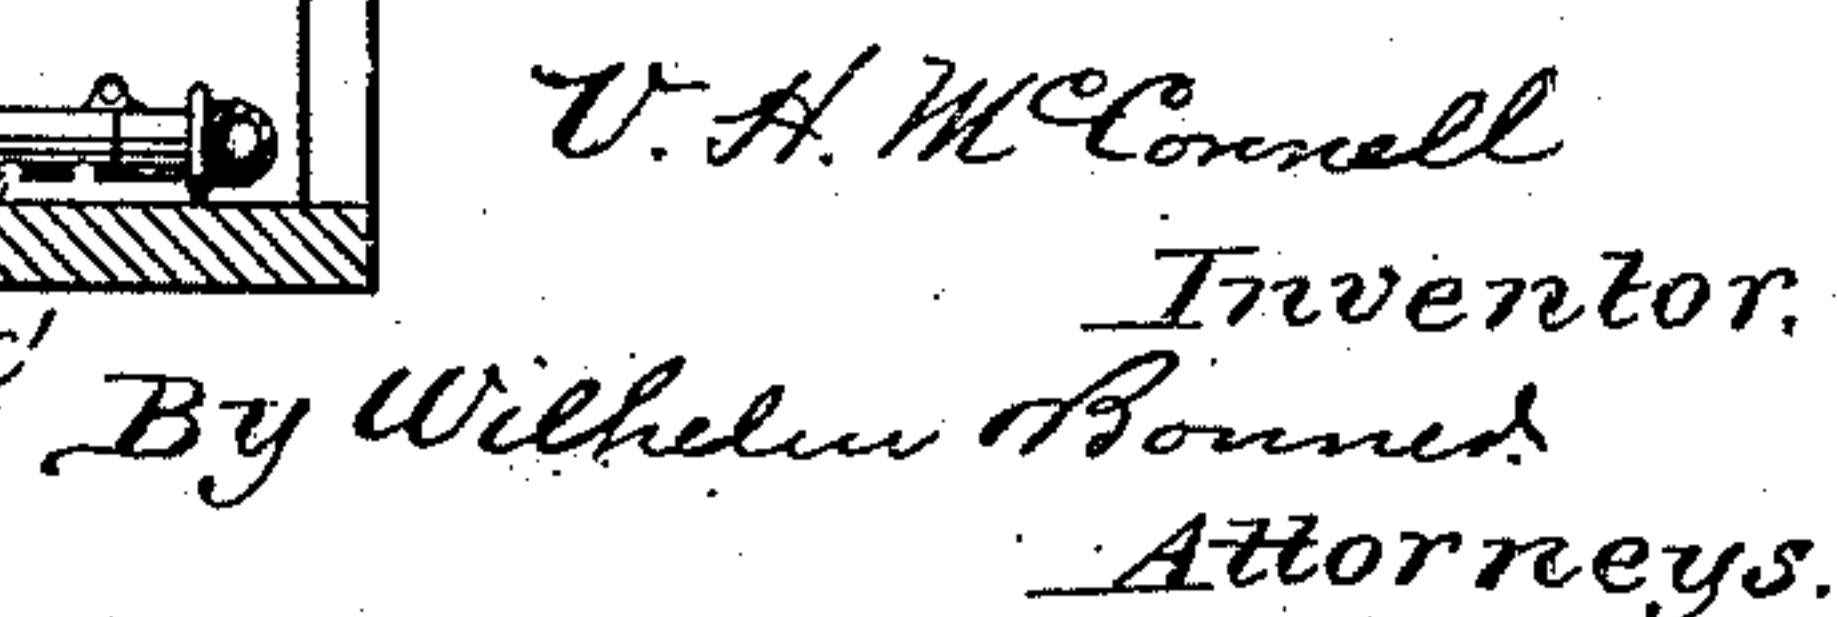 V. H. McConnell
Inventor.
By Wilhelm Bonner.
Attorneys.